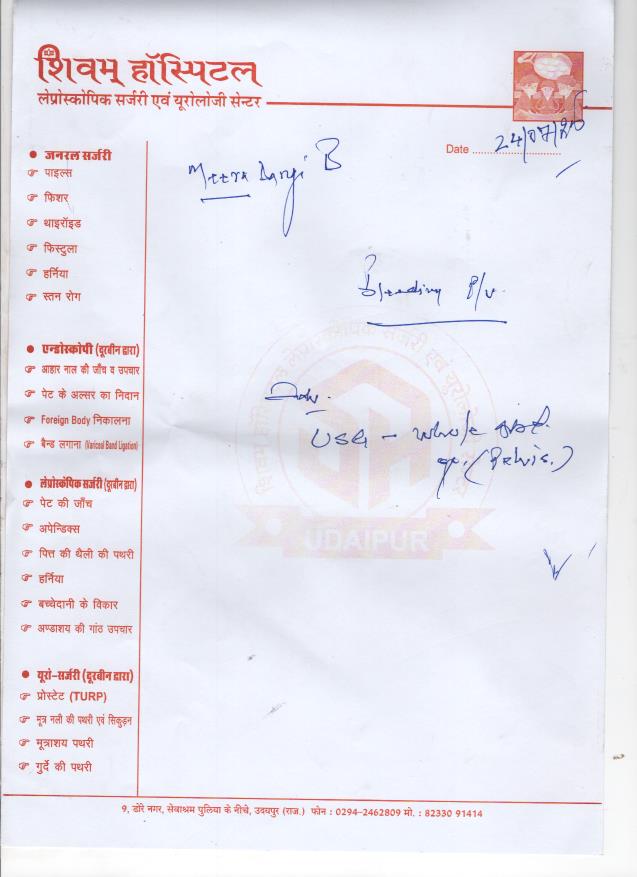 शिवम् हॉस्पिटल
लेप्रोस्कोपिक सर्जरी एवं यूरोलोजी सेन्टर
Date .......... 24/07/20
Meera Dangi B
Bleeding P/v.
Adv.
USG - Whole Abd.
(Pelvis.)
• जनरल सर्जरी
पाइल्स
फिशर
थाइरॉइड
फिस्टुला
हर्निया
स्तन रोग
• एन्डोस्कोपी (दूरबीन द्वारा)
आहार नाल की जाँच व उपचार
पेट के अल्सर का निदान
Foreign Body निकालना
बैन्ड लगाना (Variceal Band Ligation)
• लेप्रोस्कॉपिक सर्जरी (दूरबीन द्वारा)
पेट की जाँच
अपेन्डिक्स
पित्त की थैली की पथरी
हर्निया
बच्चेदानी के विकार
अण्डाशय की गांठ उपचार
• यूरो-सर्जरी (दूरबीन द्वारा)
प्रोस्टेट (TURP)
मूत्र नली की पथरी एवं सिकुड़न
मूत्राशय पथरी
गुर्दे की पथरी
UDAIPUR
9, डोरे नगर, सेवाश्रम पुलिया के नीचे, उदयपुर (राज.) फोन : 0294-2462809 मो. : 82330 91414